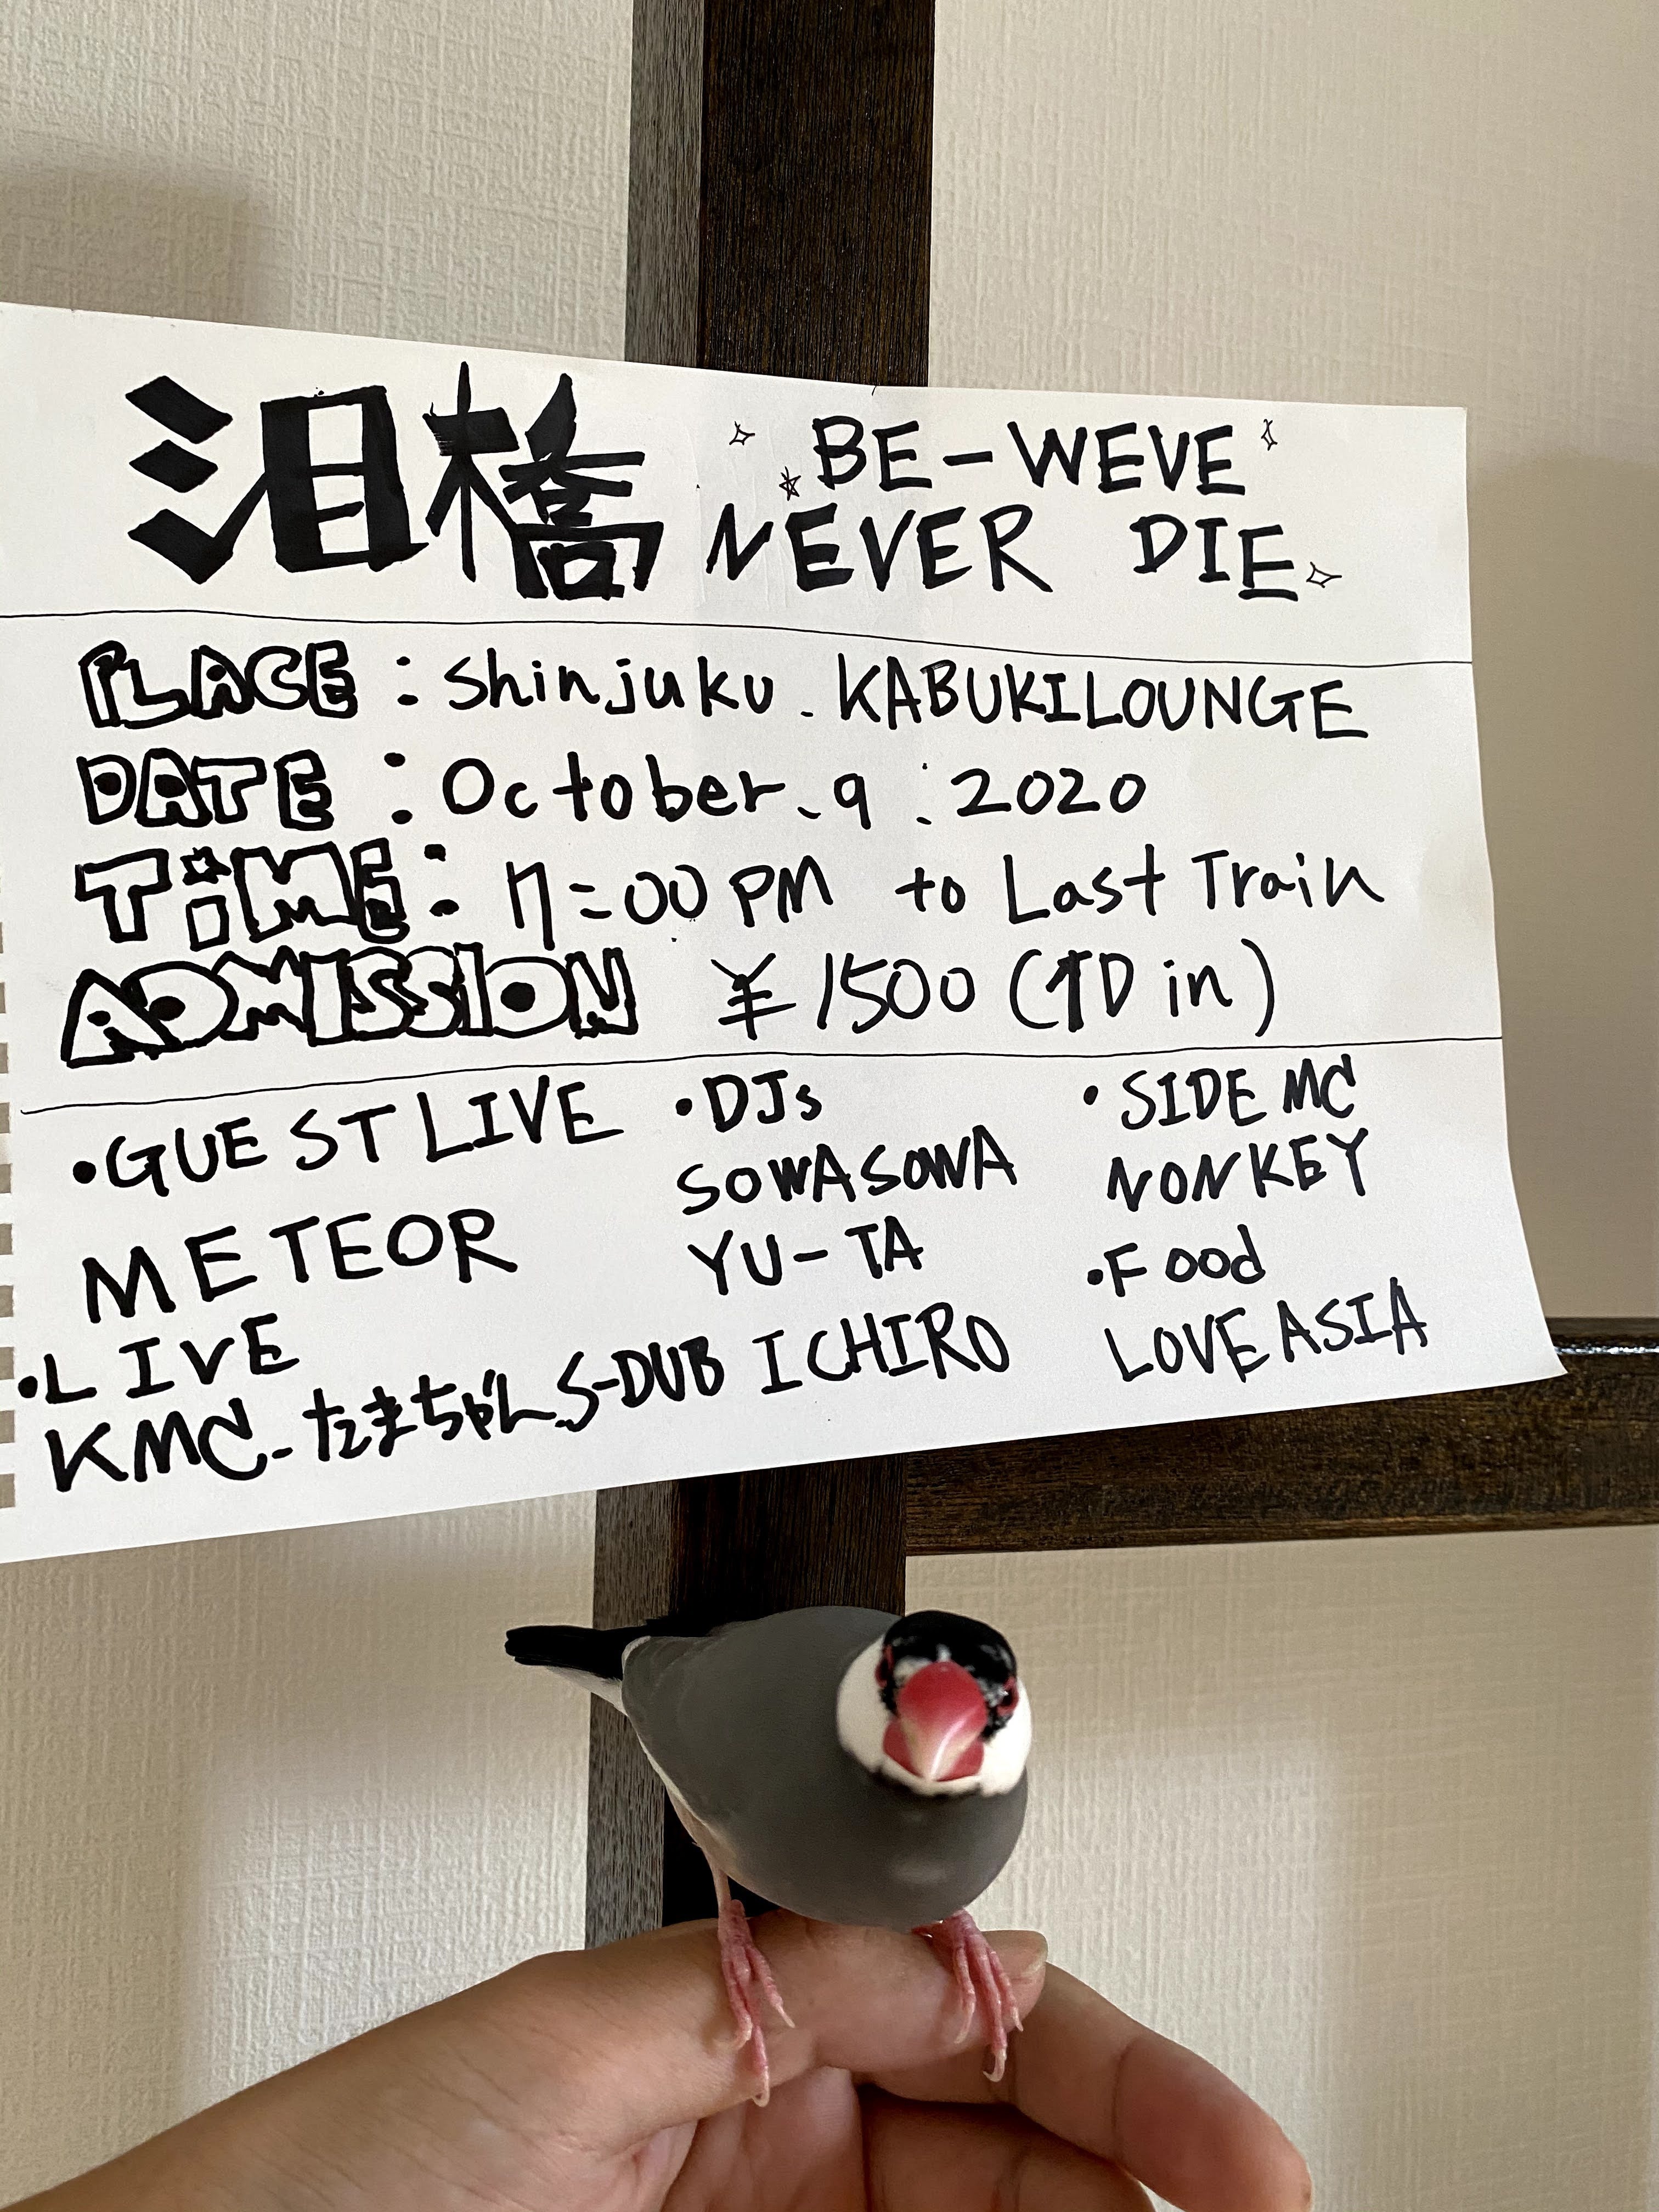 泪橋
BE-WEVE
NEVER DIE
PLACE : Shinjuku . KABUKILOUNGE
DATE : October . 9 . : 2020
TiME : 7:00 PM to Last Train
ADMISSION ¥1500 (1D in)
・GUEST LIVE
METEOR
・LIVE
KMC. たまちゃん S-DUB ICHIRO
・DJs
SOWASOWA
YU-TA
・SIDE MC
NONKEY
・Food
LOVE ASIA